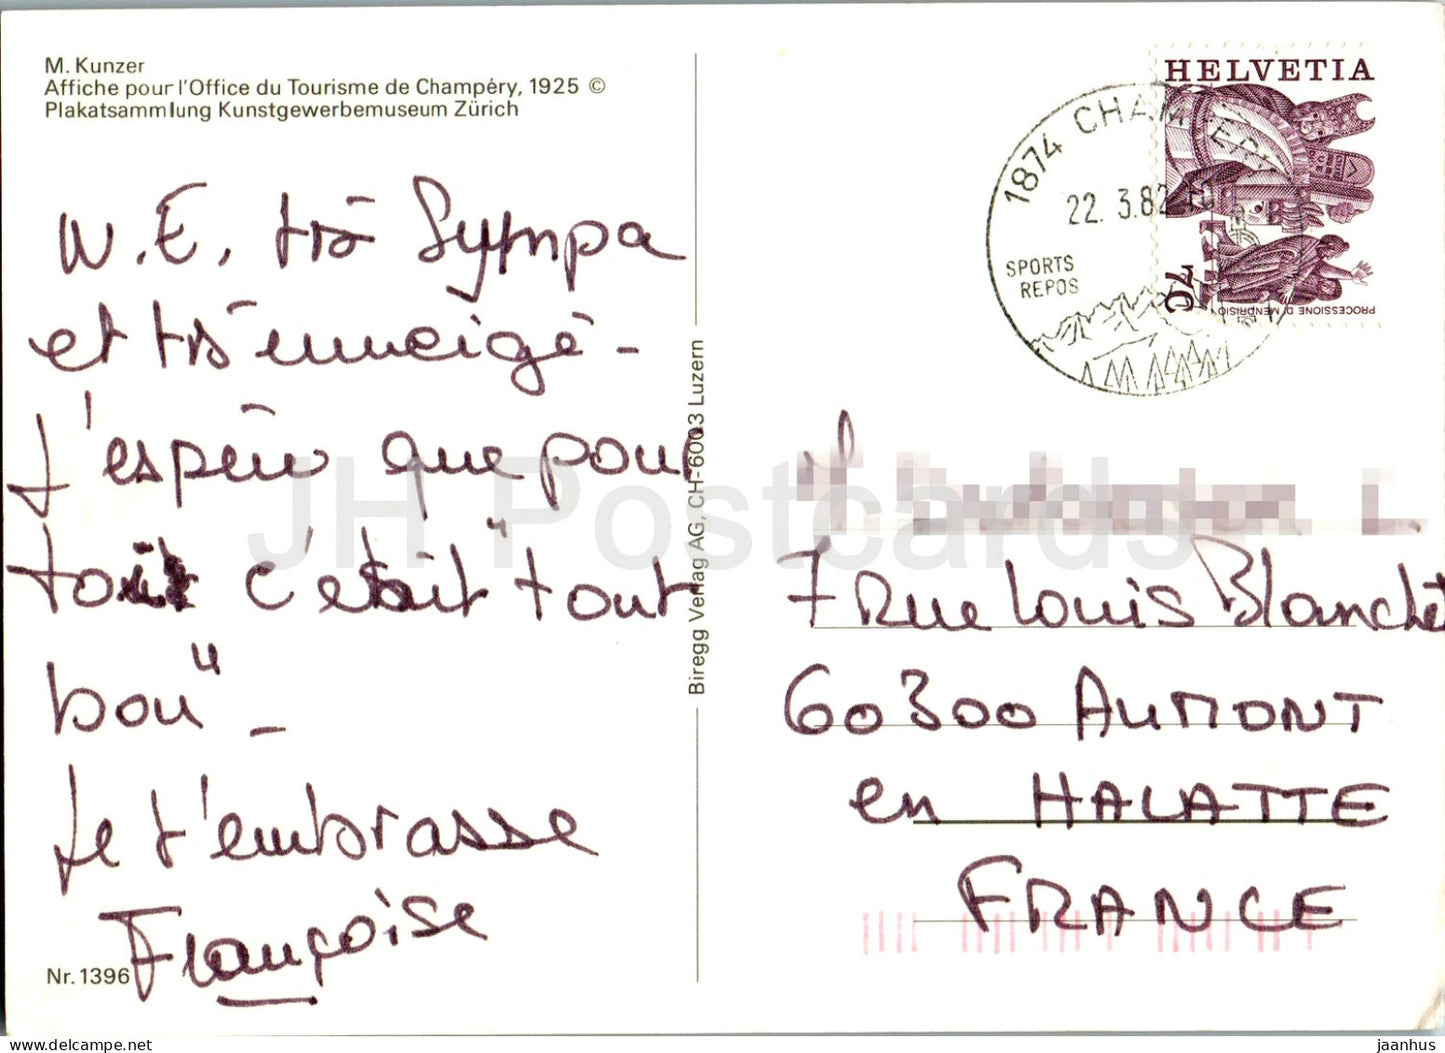 M. Kunzer
Affiche pour l'Office du Tourisme de Champéry, 1925 ©
Plakatsammlung Kunstgewerbemuseum Zürich
W.E. très Sympa
et très enneigé -
J'espère que pour
toi c'était "tout
bon" -
Je t'embrasse
Françoise
Nr. 1396
Biregg Verlag AG, CH-6003 Luzern
HELVETIA
70
PROCESSIONE DI MENDRISIO
1874 CHAMPERY
22. 3.82
SPORTS
REPOS
7 Rue Louis Blanchet
60300 AUMONT
en HALATTE
FRANCE
JH Postcards
jaanhus
www.delcampe.net